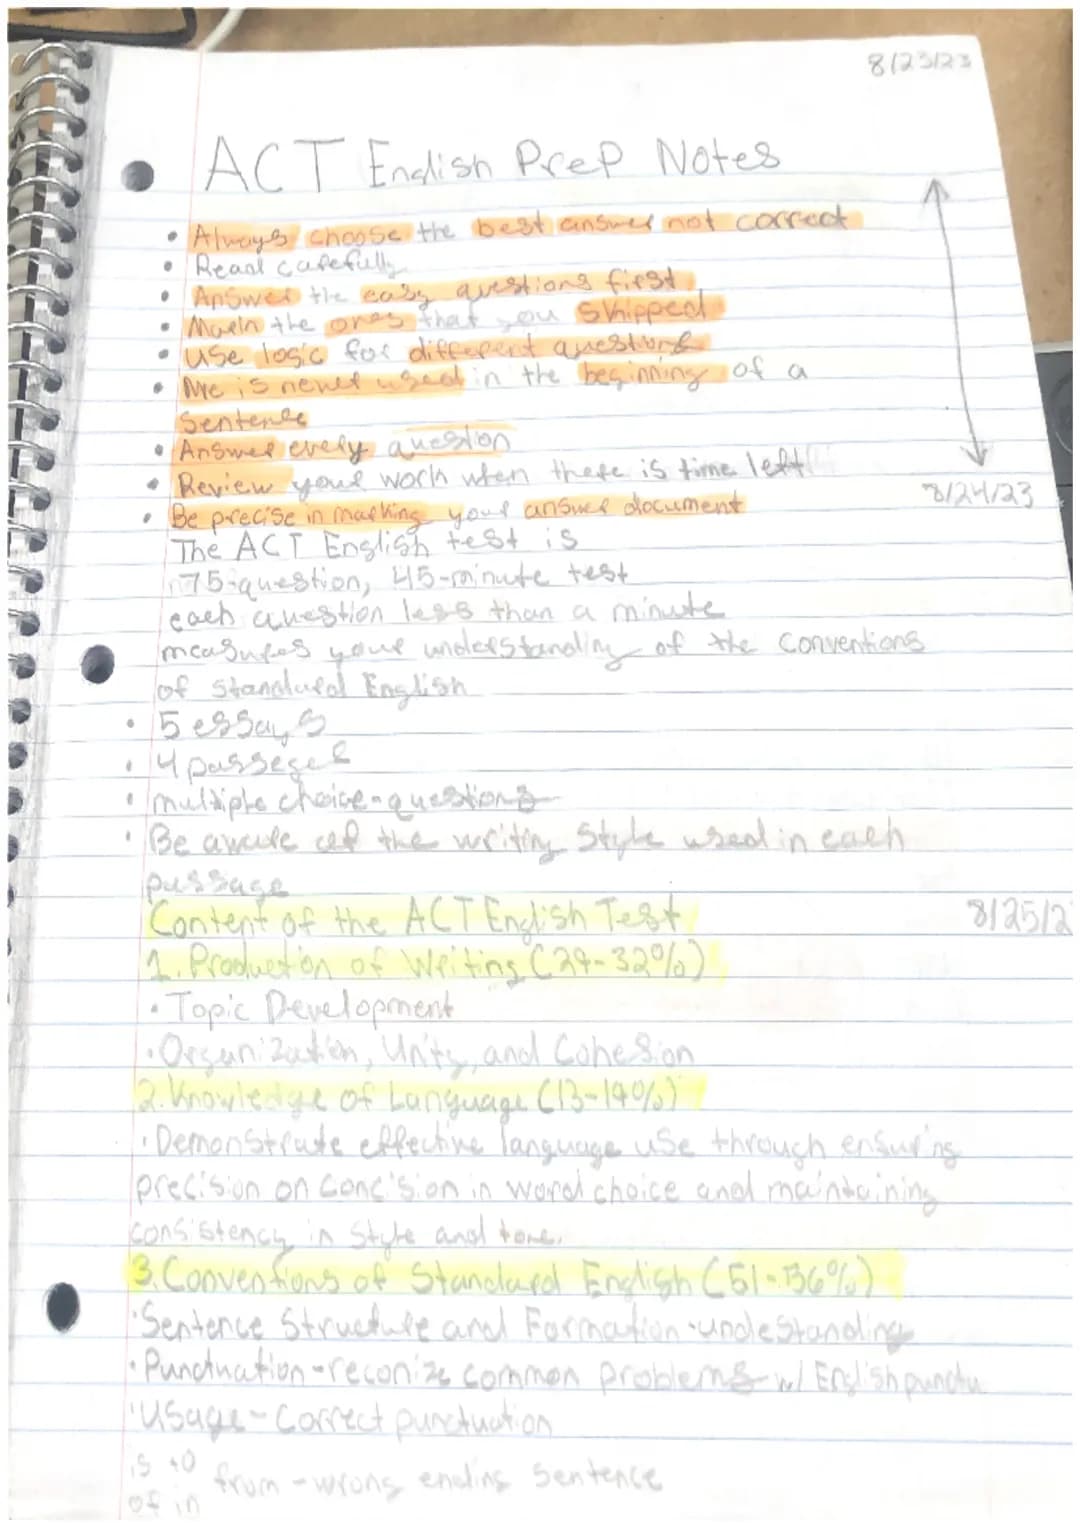 8/23/23
ACT English Prep Notes
• Always choose the best answer not correct
• Read carefully
• Answer the easy questions first
• Mark the ones that you skipped
• Use logic for different questions
• Me is never used in the beginning of a
sentence
• Answer every question
• Review your work when there is time left
8/24/23
• Be precise in marking your answer document
The ACT English test is
75-question, 45-minute test
each question less than a minute
measures your understanding of the conventions
of standard English
• 5 essays
• 4 passeges
• multiple choice-questions
• Be aware of the writing style used in each
passage
Content of the ACT English Test
8/25/2
1. Production of Writing (29-32%)
• Topic Development
• Organization, Unity, and Cohesion
2. Knowledge of Language (13-19%)
• Demonstrate effective language use through ensuring
precision on concision in word choice and maintaining
consistency in style and tone.
3. Conventions of Standard English (51-56%)
• Sentence Structure and Formation-undestanding
• Punctuation-reconize common problems w/ English punctu
• Usage-Correct punctuation
is to
from - wrong ending sentence
of in